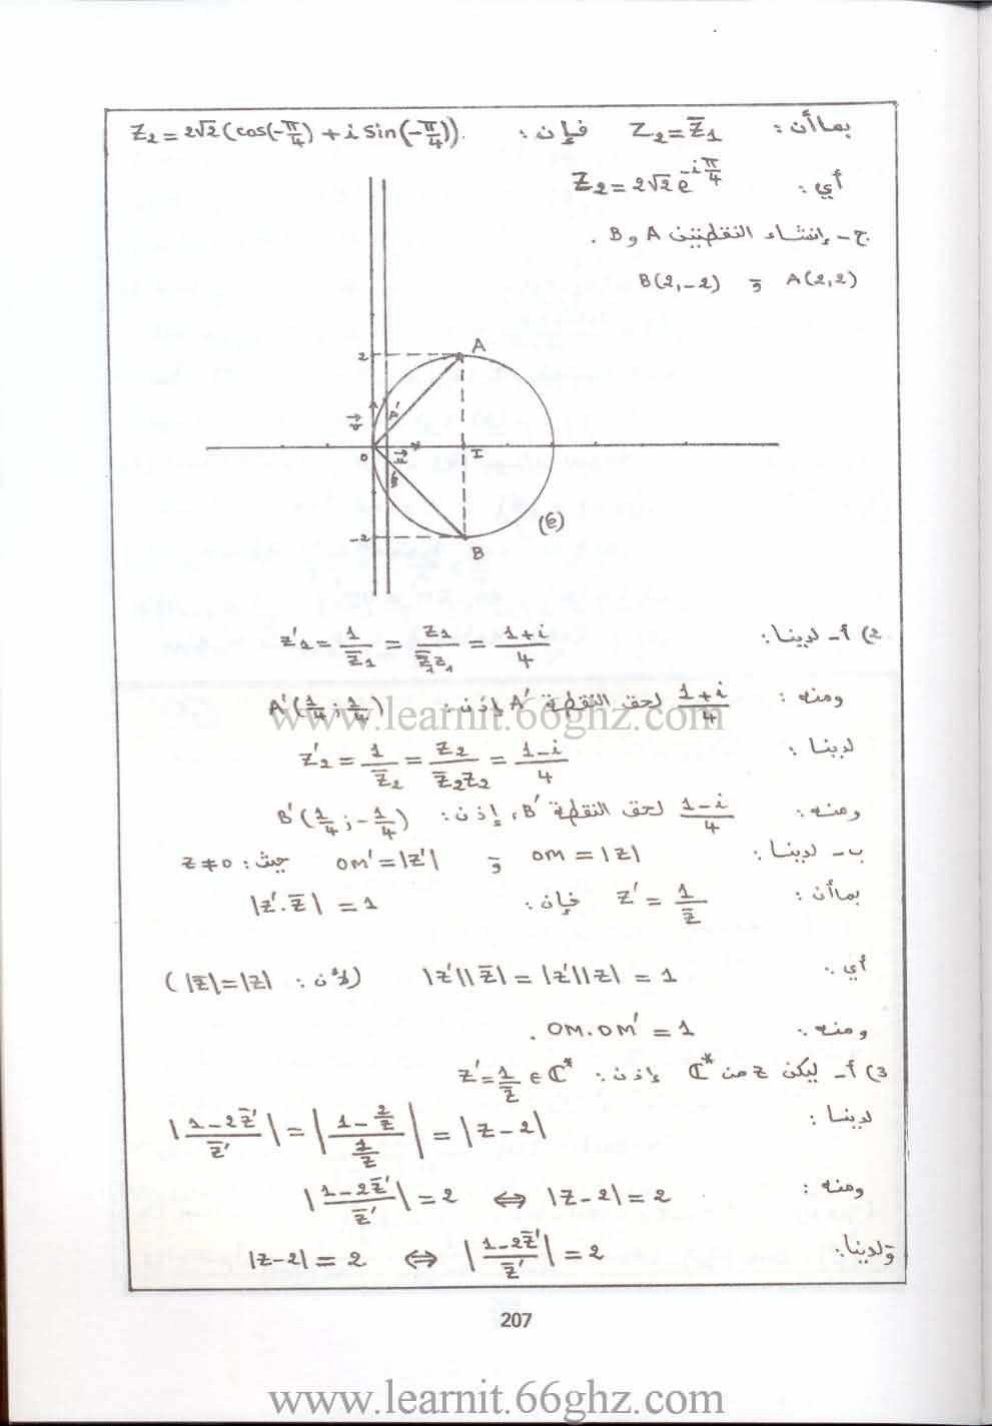 بما أن : Z₂ = Z̄₁ فإن : Z₂ = 2√2 (cos(-π/4) + i sin(-π/4)).
أي : Z₂ = 2√2 e^(-iπ/4)
ج- إنشاء النقطتين A و B .
A(2,2) و B(2,-2)
2
A
A'
v
O
u
I
B'
(C)
-2
B
2) أ- لدينا : z'₁ = 1/z̄₁ = z₁/(z̄₁z₁) = (1+i)/4
ومنه : (1+i)/4 لحق النقطة A' إذن : A'(1/4 ; 1/4)
www.learnit.66ghz.com
لدينا : z'₂ = 1/z̄₂ = z₂/(z̄₂z₂) = (1-i)/4
ومنه : (1-i)/4 لحق النقطة B' ، إذن : B'(1/4 ; -1/4)
ب- لدينا : OM = |z| و OM' = |z'| حيث : z ≠ 0
بما أن : z' = 1/z̄ فإن : |z'.z̄| = 1
أي : |z'||z̄| = |z'||z| = 1 (لأن : |z̄| = |z|)
ومنه : OM.OM' = 1 .
3) أ- ليكن z من ℂ* إذن : z' = 1/z̄ ∈ ℂ*
لدينا : |(1-2z̄')/z̄'| = |(1-2/z)/(1/z)| = |z-2|
ومنه : |(1-2z̄')/z̄'| = 2 ⇔ |z-2| = 2
ولدينا : |z-2| = 2 ⇔ |(1-2z̄')/z̄'| = 2
207
www.learnit.66ghz.com